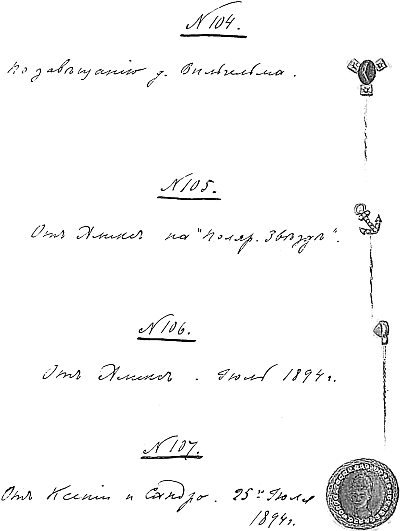 № 104.
По завѣщанію д. Вильгельма.
№ 105.
Отъ Аликсъ на "Поляр. Звѣздѣ".
№ 106.
Отъ Аликсъ. Іюль 1894 г.
№ 107.
Отъ Ксеніи и Сандро. 25го Іюля
1894 г.